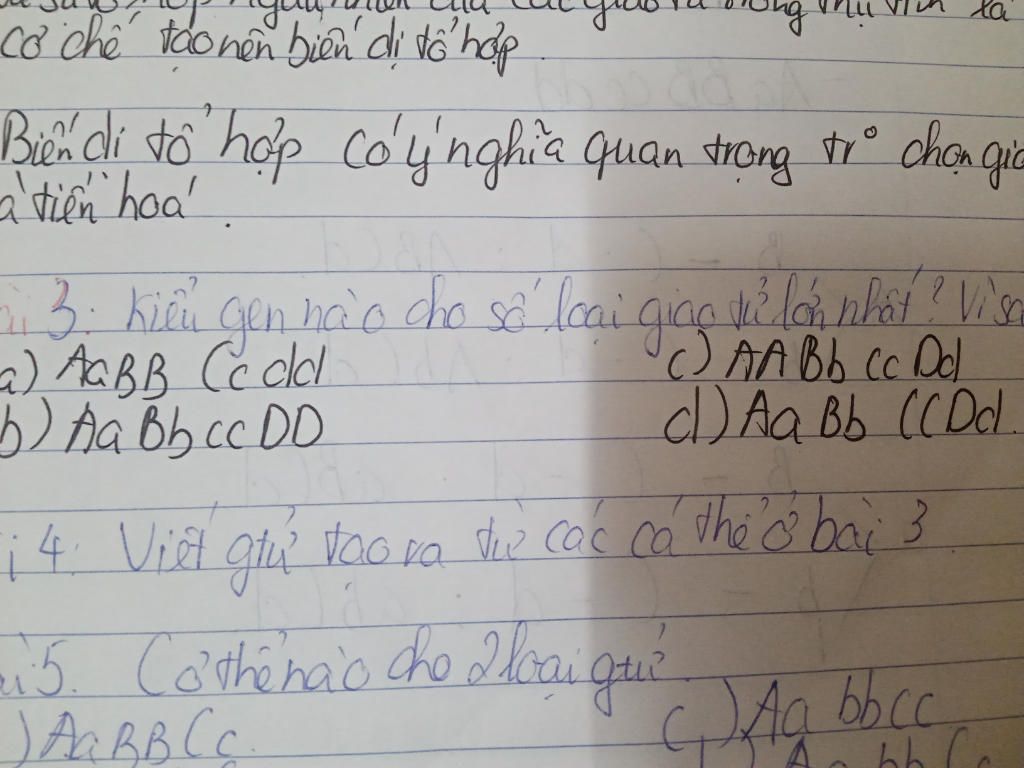 hợp ngẫu nhiên của các giao tử trong thụ tinh là
cơ chế tạo nên biến dị tổ hợp.
Biến dị tổ hợp có ý nghĩa quan trọng tr° chọn giố
à tiến hoá.
ài 3: Kiểu gen nào cho số loại giao tử lớn nhất? Vì sa
a) AaBB Cc dd c) AA Bb cc Dd
b) Aa Bb cc DD d) Aa Bb CC Dd.
i 4: Viết gtử tạo ra từ các cá thể ở bài 3
ài 5. Cơ thể nào cho 2 loại gtử.
) AaBB Cc. c) Aa bbcc
) Aa bb Cc